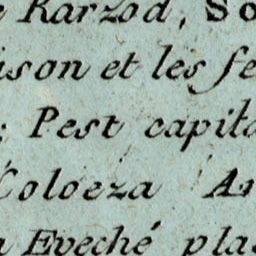 Karzod, So
ison et les fe
; Pest capita
Coloeza Ar
Eveché pla